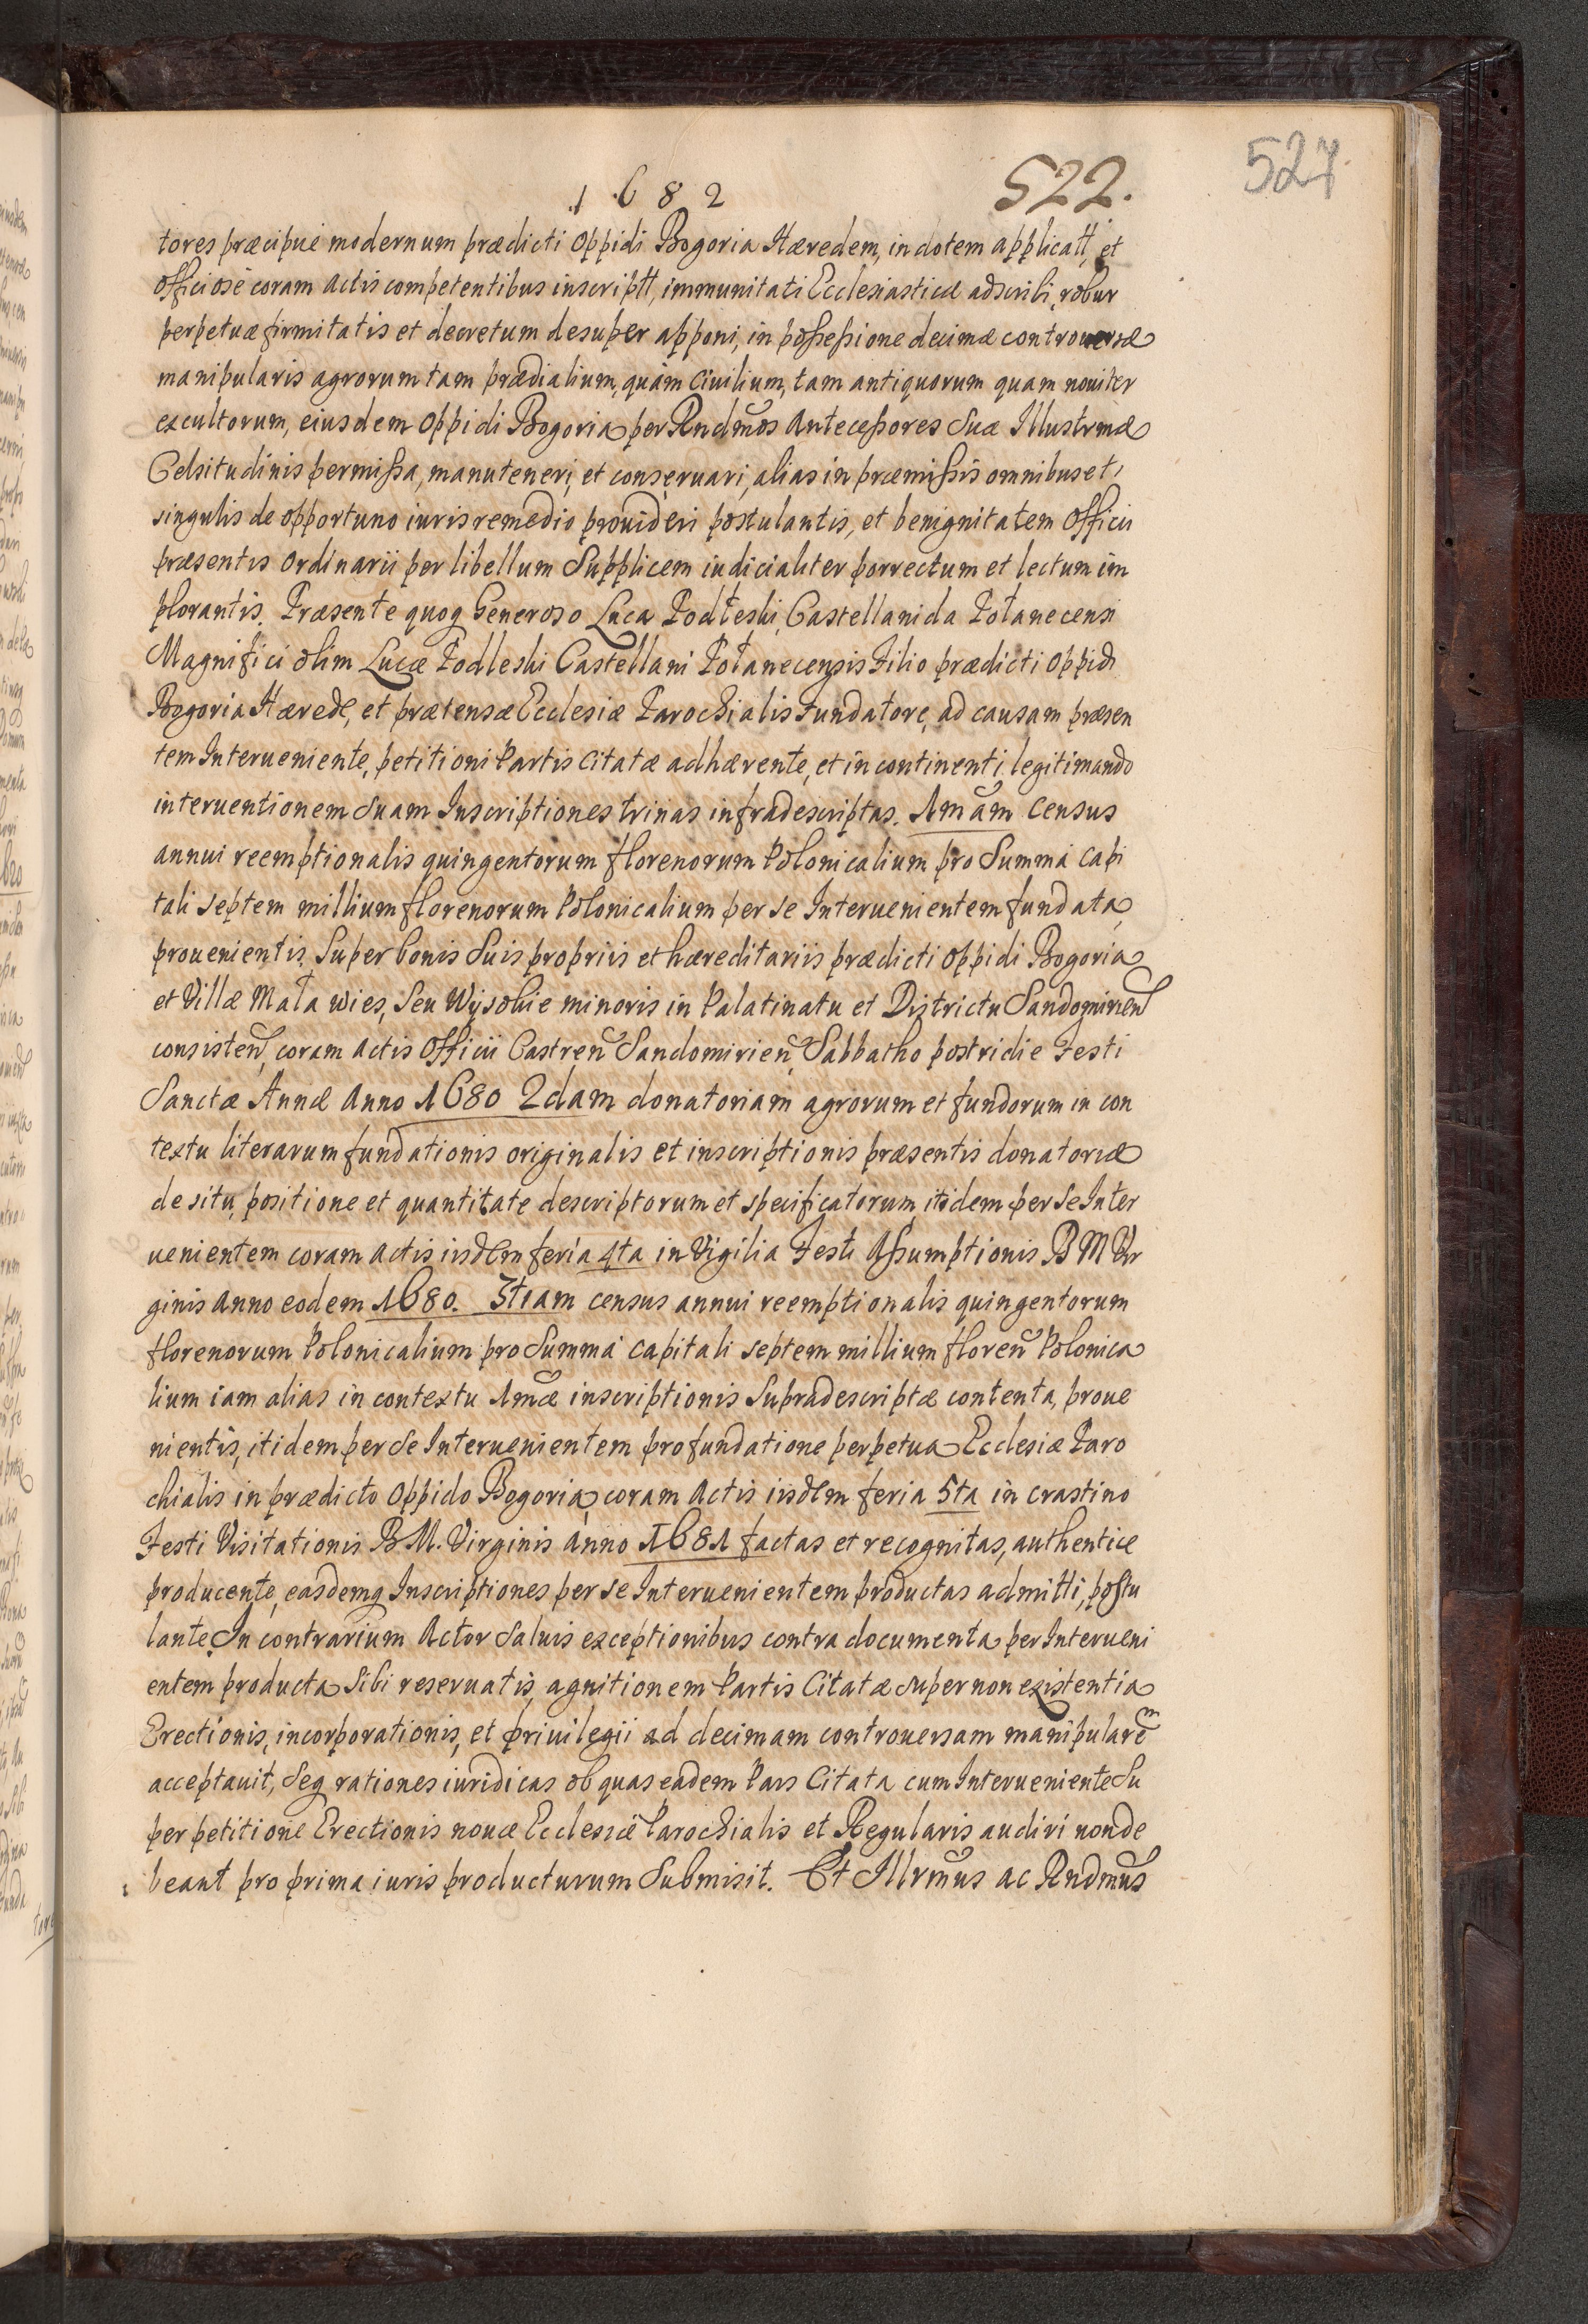 527
522.
1682
tores præcipuè modernum prædicti Oppidi Bogoria Hæredem, in dotem applicatt, et
officiosè coram Actis competentibus inscriptt, immunitati Ecclesiasticæ adscribi, robur
perpetuæ firmitatis et decretum desuper apponi, in possessione decimæ controuersæ
manipularis agrorum tam prædialium, quàm Ciuilium, tam antiquorum quam nouiter
excultorum, eiusdem Oppidi Bogoria per Rndmos Antecessores Suæ Illustrmæ
Celsitudinis permissa, manuteneri, et conseruari, alias in præmissis omnibus et
singulis de opportuno iuris remedio prouideri postulantis, et benignitatem Officii
præsentis Ordinarii per libellum Supplicem iudicialiter porrectum et lectum im
plorantis. Præsente quoq Generoso Luca Podłeski, Castellanida Połanecensi
Magnifici olim Lucæ Podleski Castellani Połanecensis Filio prædicti Oppidi
Bogoria Hærede, et prætensæ Ecclesiæ Parochialis Fundatore, ad causam præsen
tem Interueniente, petitioni Partis Citatæ adhærente, et in continenti legitimando
interuentionem Suam Inscriptiones trinas infradescriptas. 1mãm Census
annui reemptionalis quingentorum florenorum Polonicalium pro Summa Capi
tali septem millium florenorum Polonicalium per se Interuenientem fundata
prouenientis, Super bonis Suis propriis et hæreditariis prædicti Oppidi Bogoria
et Villæ Mała wies, Seu Wysokie minoris in Palatinatu et Districtu Sandomirien
consisten, coram Actis Officii Castren Sandomirien, Sabbatho postridie Festi
Sanctæ Annæ Anno 1680 2dam donatoriam agrorum et fundorum in con
textu literarum fundationis originalis et inscriptionis præsentis donatoriæ
de situ, positione et quantitate descriptorum et specificatorum, itidem per Se Inter
uenientem coram Actis iisdem feria 4ta in Vigilia Festi Assumptionis B M Vir
ginis Anno eodem 1680. 3tiam census annui reemptionalis quingentorum
florenorum Polonicalium pro Summa Capitali septem millium floren Polonica
lium iam alias in contextu 1mæ inscriptionis Supradescriptæ contenta, proue
nientis, itidem per Se Interuenientem pro fundatione perpetua Ecclesiæ Paro
chialis in prædicto Oppido Bogoria, coram Actis iisdem feria 5ta in crastino
Festi Visitationis B M. Virginis Anno 1681 factas et recognitas, authenticè
producente, easdemq Inscriptiones per se Interuenientem productas admitti, postu
lante. In contrarium Actor Saluis exceptionibus contra documenta per Interueni
entem producta Sibi reseruatis, agnitionem Partis Citatæ Super non existentia
Erectionis, incorporationis, et priuilegii ad decimam controuersam manipularem
acceptauit, Seq rationes iuridicas ob quas eadem Pars Citata cum Interueniente Su
per petitione Erectionis nouæ Ecclesiæ Parochialis et Regularis audiri non de
beant pro prima iuris producturum Submisit. Et Illrmus ac Rndmus